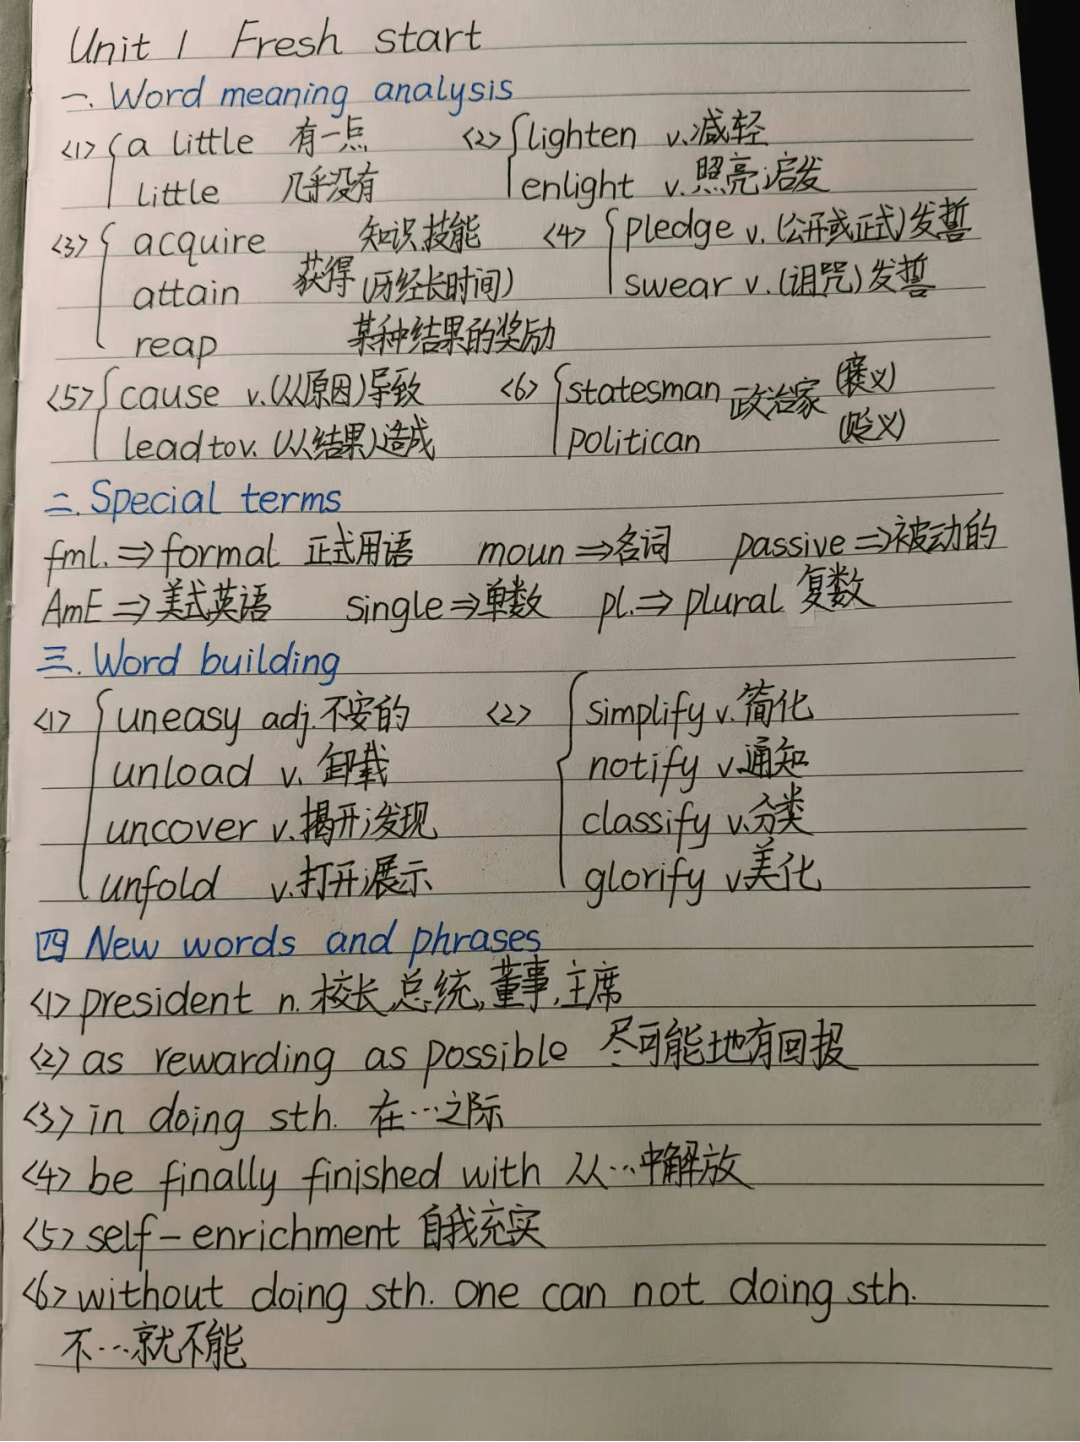 Unit 1 Fresh start
一. Word meaning analysis
<1> { a little 有一点 <2> { lighten v.减轻
little 几乎没有 enlight v.照亮;启发
<3> { acquire 知识,技能 <4> { pledge v.(公开或正式)发誓
attain 获得 (历经长时间) swear v.(诅咒)发誓
reap 某种结果的奖励
<5> { cause v.(以原因)导致 <6> { statesman 政治家 (褒义)
lead to v.(以结果)造成 politican (贬义)
二. Special terms
fml. ⇒ formal 正式用语 moun ⇒ 名词 passive ⇒ 被动的
AmE ⇒ 美式英语 single ⇒ 单数 pl. ⇒ plural 复数
三. Word building
<1> { uneasy adj.不安的 <2> { simplify v.简化
unload v.卸载 notify v.通知
uncover v.揭开;发现 classify v.分类
unfold v.打开;展示 glorify v.美化
四 New words and phrases
<1> president n.校长,总统,董事,主席
<2> as rewarding as possible 尽可能地有回报
<3> in doing sth. 在…之际
<4> be finally finished with 从…中解放
<5> self-enrichment 自我充实
<6> without doing sth. one can not doing sth.
不…就不能